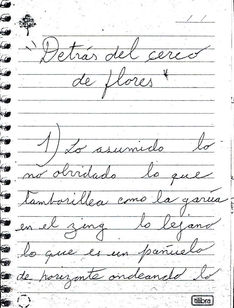 "Detrás del cerco
de flores"
1) Lo asumido lo
no olvidado lo que
tamborillea como la garúa
en el zing lo lejano
lo que es un pañuelo
de horizonte ondeando lo
tilibra